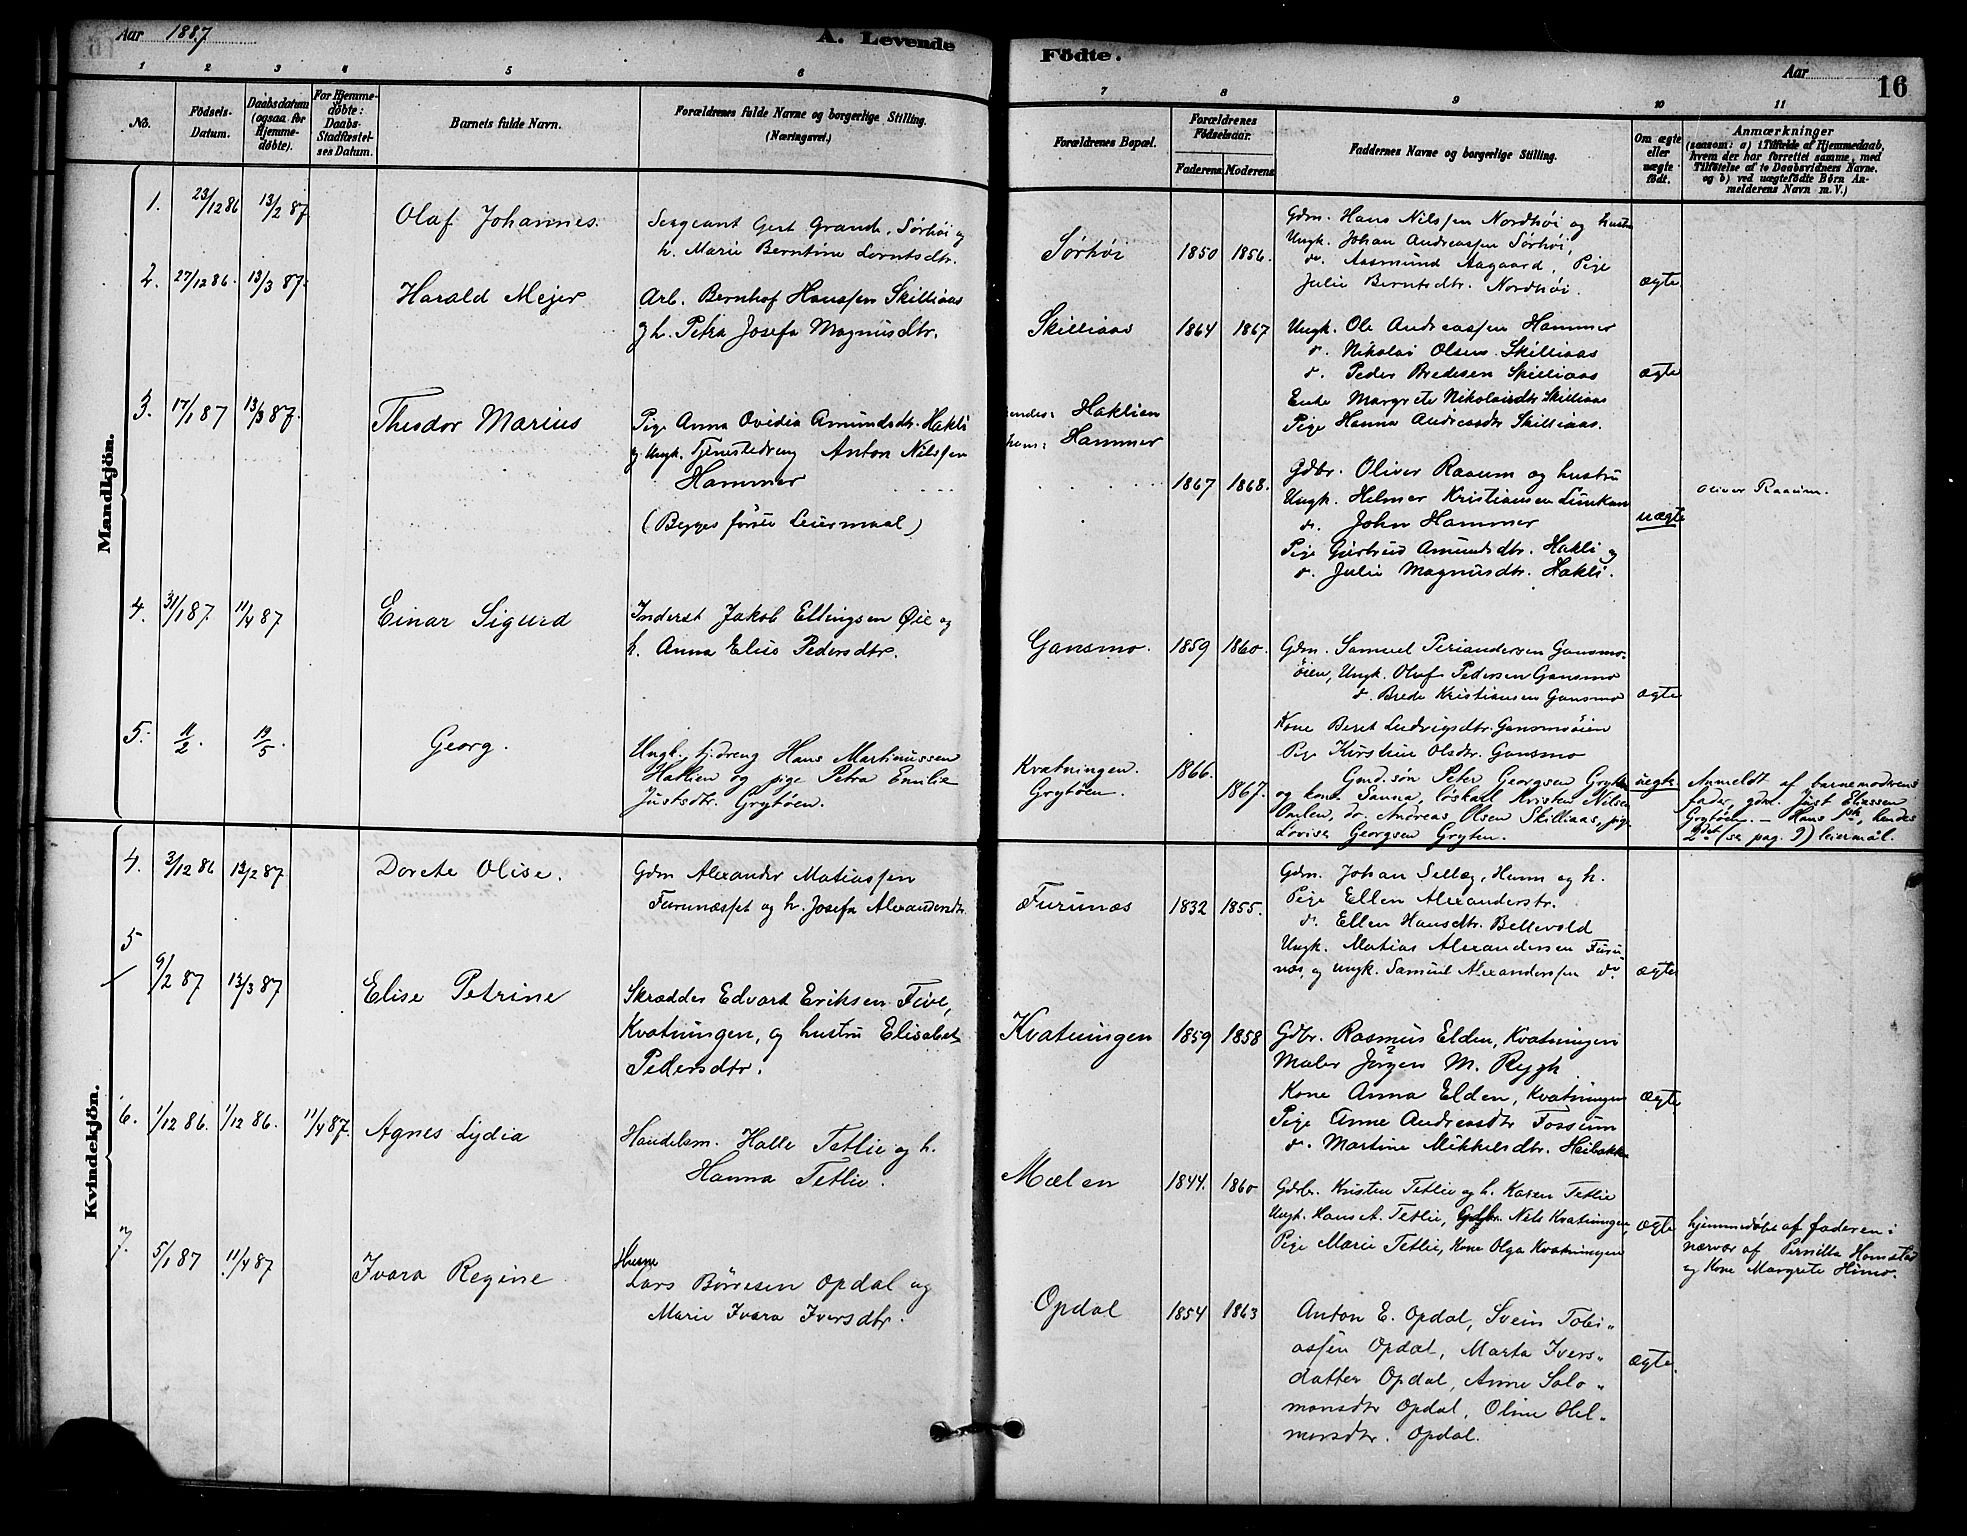 Aar 1887.
A. Levende
1 2 3 4 5 6
No.
Fødsels-
Datum.
Daabsdatum
(ogsaa for
Hjemme-
døbte).
For Hjemme-
døbte:
Daabs-
Stadfæstel-
ses Datum.
Barnets fulde Navn.
Forældrenes fulde Navne og borgerlige Stilling.
(Næringsvei.)
Mandkjön.
1. 23/12 86 13/2 87 Olaf Johannes.
Sergeant Gert Grande, Sørhøi og
h. Marie Berntine Lorntsdtr.
2. 27/12 86. 13/3 87. Harald Mejer
Arb. Bernhof Hanssen Skilliaas
og h. Petra Josefa Magnusdtr.
3. 17/1 87 13/3 87. Theodor Marius
Pige Anna Ovidia Amundsdtr. Hakli
og Ungk. Tjenestedreng Anton Nilssen
Hammer
(Begges første Leiermaal)
4. 31/1 87. 11/4 87 Einar Sigurd
Inderst Jakob Ellingsen Øie og
h. Anna Elise Pedersdtr.
5. 11/2. 19/5. Georg.
Ungk. tjdreng Hans Martinussen
Haklien og pige Petra Emilie
Justsdtr. Grytøen.
Kvindekjön.
4. 3/12 86 13/2 87 Dorete Olise.
Gdm Alexander Matiassen
Furunæsset og h. Josefa Alexandersdtr.
5 9/2 87 13/3 87 Elise Petrine
Skrædder Edvart Eriksen Five,
Kvatningen, og hustru Elisabet
Pedersdtr.
6. 1/12 86. 1/12 86. 11/4 87. Agnes Lydia
Handelsm. Halle Tetlie og h.
Hanna Tetlie.
7. 5/1 87 11/4 87 Ivara Regine
Husm
Lars Börresen Opdal og
Marie Ivara Iversdtr.
Födte.
Aar
16
7 8 9 10 11
Forældrenes Bopæl.
Forældrenes
Födselsaar.
Faderens Moderens
Faddernes Navne og borgerlige Stilling.
Om ægte
eller
uægte
født.
Anmærkninger
(saasom: a) i Tilfælde af Hjemmedaab,
hvem der har forrettet samme, med
Tilføielse af to Daabsvidners Navne.
og b) ved uægtefödte Börn An-
melderens Navn m. V.)
Sørhøi 1850 1856.
Gdm. Hans Nilssen Nordhøi og hustru
Ungk. Johan Andreassen Sørhøi,
do. Aasmund Aagaard, Pige
Julie Berntsdtr. Nordhøi. ægte
Skilliaas 1864 1867
Ungk. Ole Andreassen Hammer
d. Nikolai Olsen Skilliaas
d. Peder Bredesen Skilliaas ægte
Enke Margrete Nikolaisdtr Skilliaas
Pige Hanna Andreasdtr Skilliaas.
hendes: Haklien
hans: Hammer
1867 1868.
Gdbr. Oliver Raaum og hustru
Ungk. Helmer Kristiansen
d. John Hammer uægte
Pige Gurtrud Amundsdtr. Hakli og
d. Julie Magnusdtr. Hakli.
Oliver Raaum.
Gansmo. 1859 1860.
Gdm. Samuel Periandersen Gansmo-
öien, Ungk. Oluf Pedersen Gansmo
d. Brede Kristiansen Gansmo ægte
Kone Beret Ludvigsdtr. Gansmoöien
Pige Kirstine Olsdtr. Gansmo
Kvatningen. 1866.
Grytøen. 1867.
Gmd.søn Peter Georgsen Gryten uegte
og kone Sanna, løskarl Kristen Nilsen
Omlen, do. Andreas Olsen Skilliaas, pige
Lovise Georgsen Gryten.
Anmeldt af barnemodrens
fader, gdm. Just Eliassen
Grytöen. – Hans 1ste, hendes
2det (se pag. 9) leiermål.
Furunæs 1832 1855.
Gdm. Johan Sellæg, Humm og h.
Pige Ellen Alexanderstr.
d. Ellen Hansdtr. Bellevold
Ungk. Matias Alexandersen Furu-
næs, og ungk. Samuel Alexanderssen do ægte
Kvatningen 1859 1858
Gdbr. Rasmus Elden, Kvatningen
Maler Jørgen M. Rygh
Kone Anna Elden, Kvatningen ægte
Pige Anne Andreasdtr Fossum
d. Martine Mikkelsdtr. Heibakken
Mælen 1844. 1860
Gdbr. Kristen Tetlie og h. Karen Tetlie
Ungk. Hans A. Tetlie, Gdbr. Nils Kvatningen, ægte
Pige Marie Tetlie, Kone Olga Kvatningen
hjemmedöbt af faderen i
nærvær af Pernilla Homstad
og Kone Margrete Himo.
Opdal 1854 1863
Anton E. Opdal, Svein Tobi-
assen Opdal, Marta Ivers-
datter Opdal, Anne Salo-
monsdtr Opdal, Oline Hel-
mersdtr. Opdal. ægte.